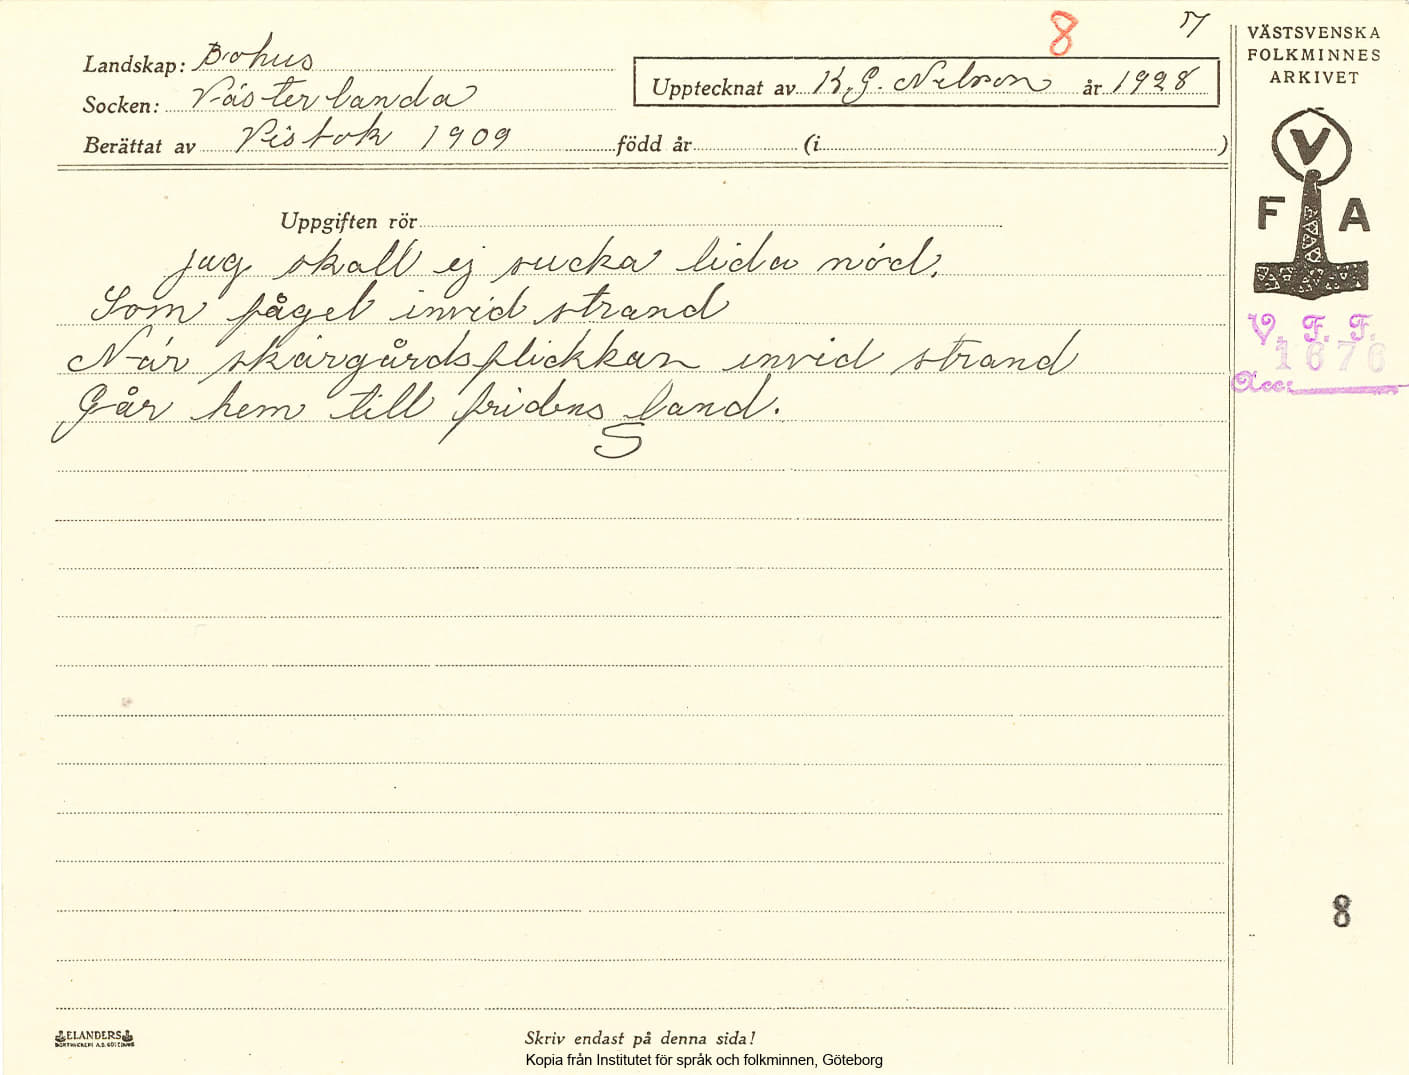 8 7
Landskap: Bohus
Socken: Västerlanda
Berättat av Visbok 1909 född år (i )
Upptecknat av K. G. Nilson år 1928
Uppgiften rör
jag skall ej sucka lida nöd,
Som fågel invid strand
När skärgårdsflickkan invid strand
Går hem till fridens land.
S
VÄSTSVENSKA
FOLKMINNES
ARKIVET
V
F A
V. F. F.
1676
Acc:
8
ELANDERS
Skriv endast på denna sida!
Kopia från Institutet för språk och folkminnen, Göteborg